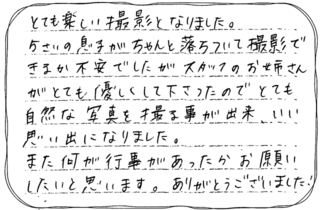 とても楽しい撮影となりました。
5さいの息子がちゃんと落ちついて撮影で
きるか不安でしたがスタッフのお姉さん
がとても優しくして下さったのでとても
自然な写真を撮る事が出来、いい
思い出になりました。
また何か行事があったらお願い
したいと思います。ありがとうございました!